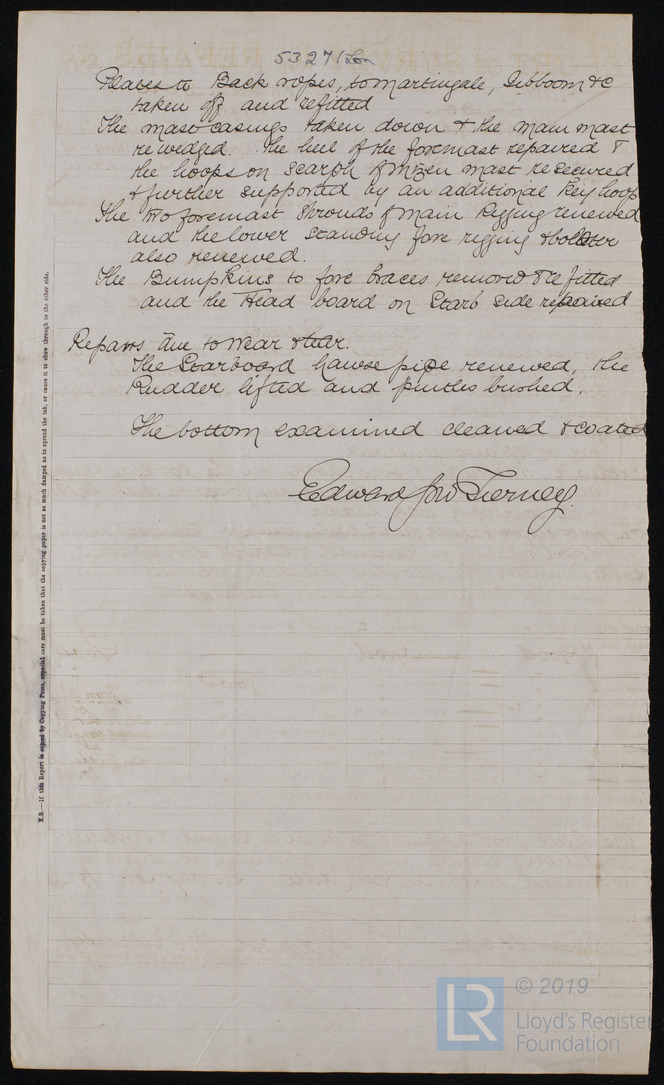 5327 Lon
Places to Back ropes, to martingale, Jibboom &c
taken off and refitted
The mast casings taken down & the main mast
rewedged. The heel of the foremast repaired &
the hoops on scarph of mizen mast resecured
& further supported by an additional key hoop
The two foremast shrouds of main Rigging renewed
and the lower standing fore rigging &
also renewed.
The Bumpkins to fore braces removed & refitted
and the Head board on Starb side repaired
Repairs due to wear & tear.
The Starboard hawse pipe renewed, the
Rudder lifted and pintles bushed.
The bottom examined cleaned & coated
Edward Jno Tierney.
N.B.—If this Report is copied by Copying Press, especial care must be taken that the copying paper is not so much damped as to spread the ink, or cause it to show through to the other side.
LR
© 2019
Lloyd's Register
Foundation